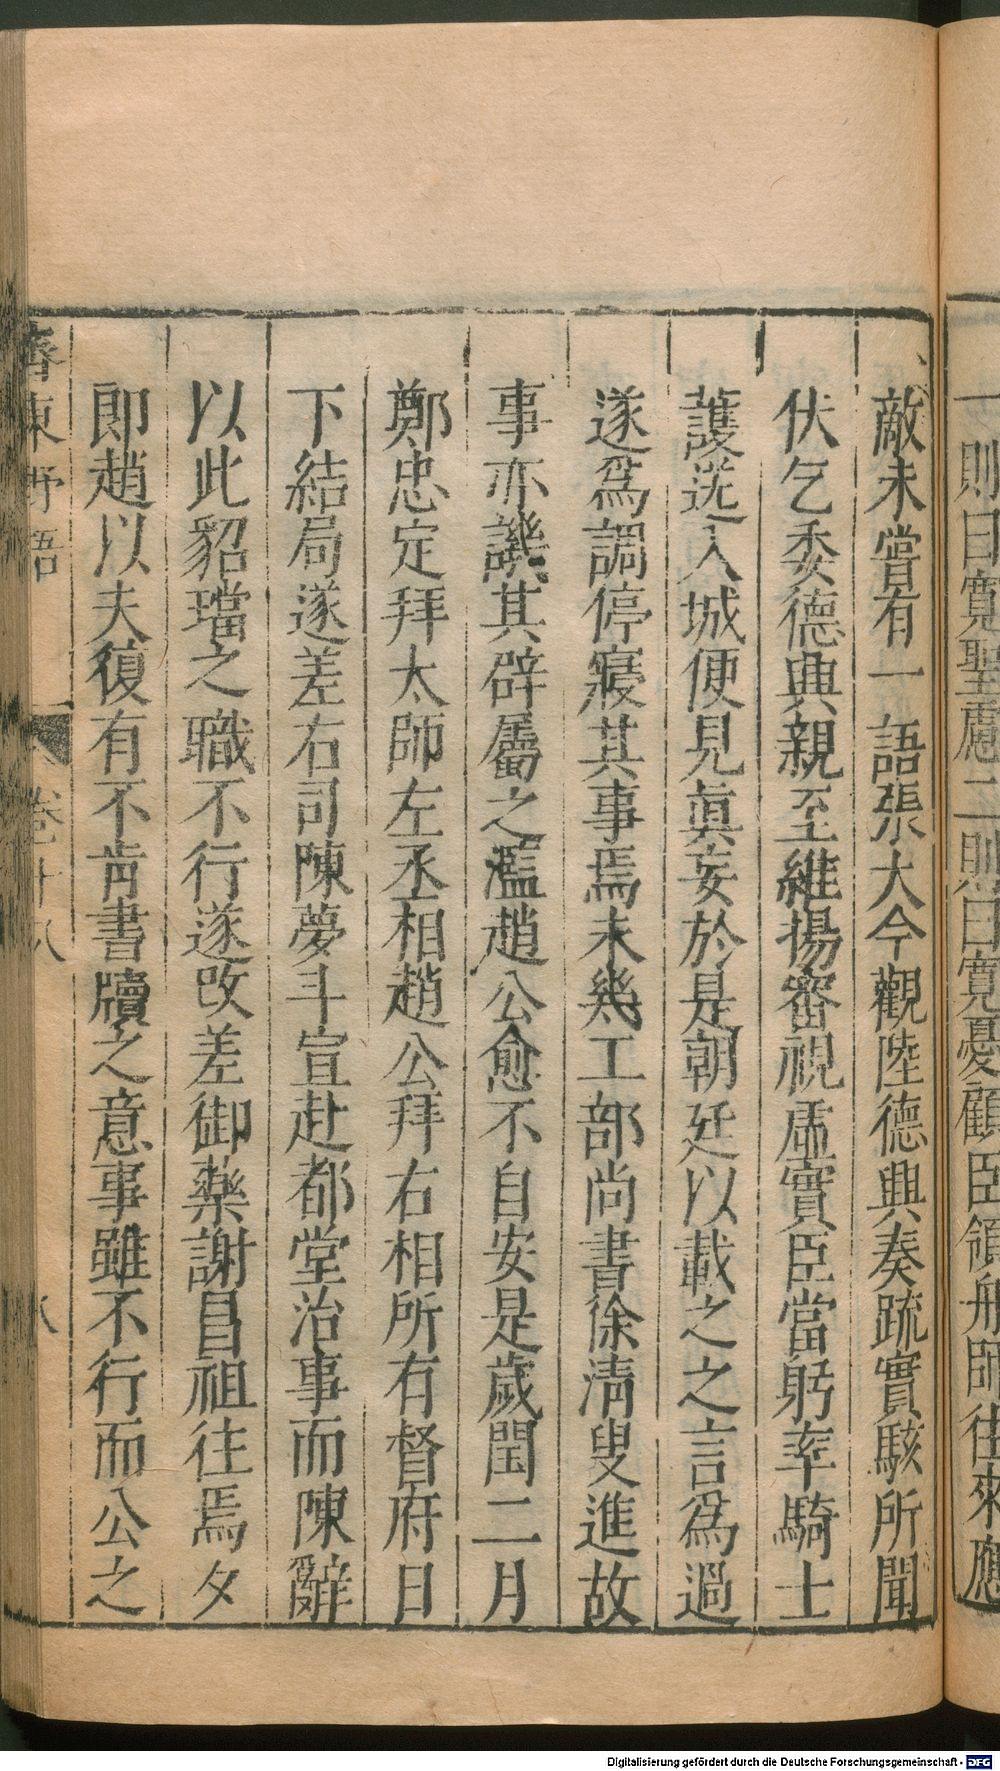 一則曰寬聖慮二則曰寬憂顧臣領舟師往來應
敵未嘗有一語張大今觀陸德興奏疏實駭所聞
伏乞委德興親至維揚審視虛實臣當躬率騎士
護送入城便見真妄於是朝廷以載之之言為過
遂為調停寢其事焉未幾工部尚書徐清叟進故
事亦譏其辟屬之濫趙公愈不自安是歲閏二月
鄭忠定拜太師左丞相趙公拜右相所有督府日
下結局遂差右司陳夢斗宣赴都堂治事而陳辭
以此貂璫之職不行遂改差御藥謝昌祖往焉夕
即趙以夫復有不肯書牘之意事雖不行而公之
齊東野語 卷十八 八
Digitalisierung gefördert durch die Deutsche Forschungsgemeinschaft - DFG